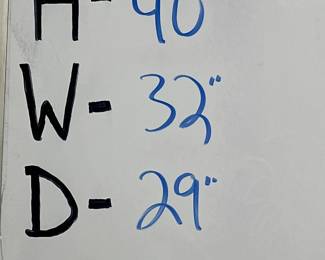 H- 40
W- 32"
D- 29"